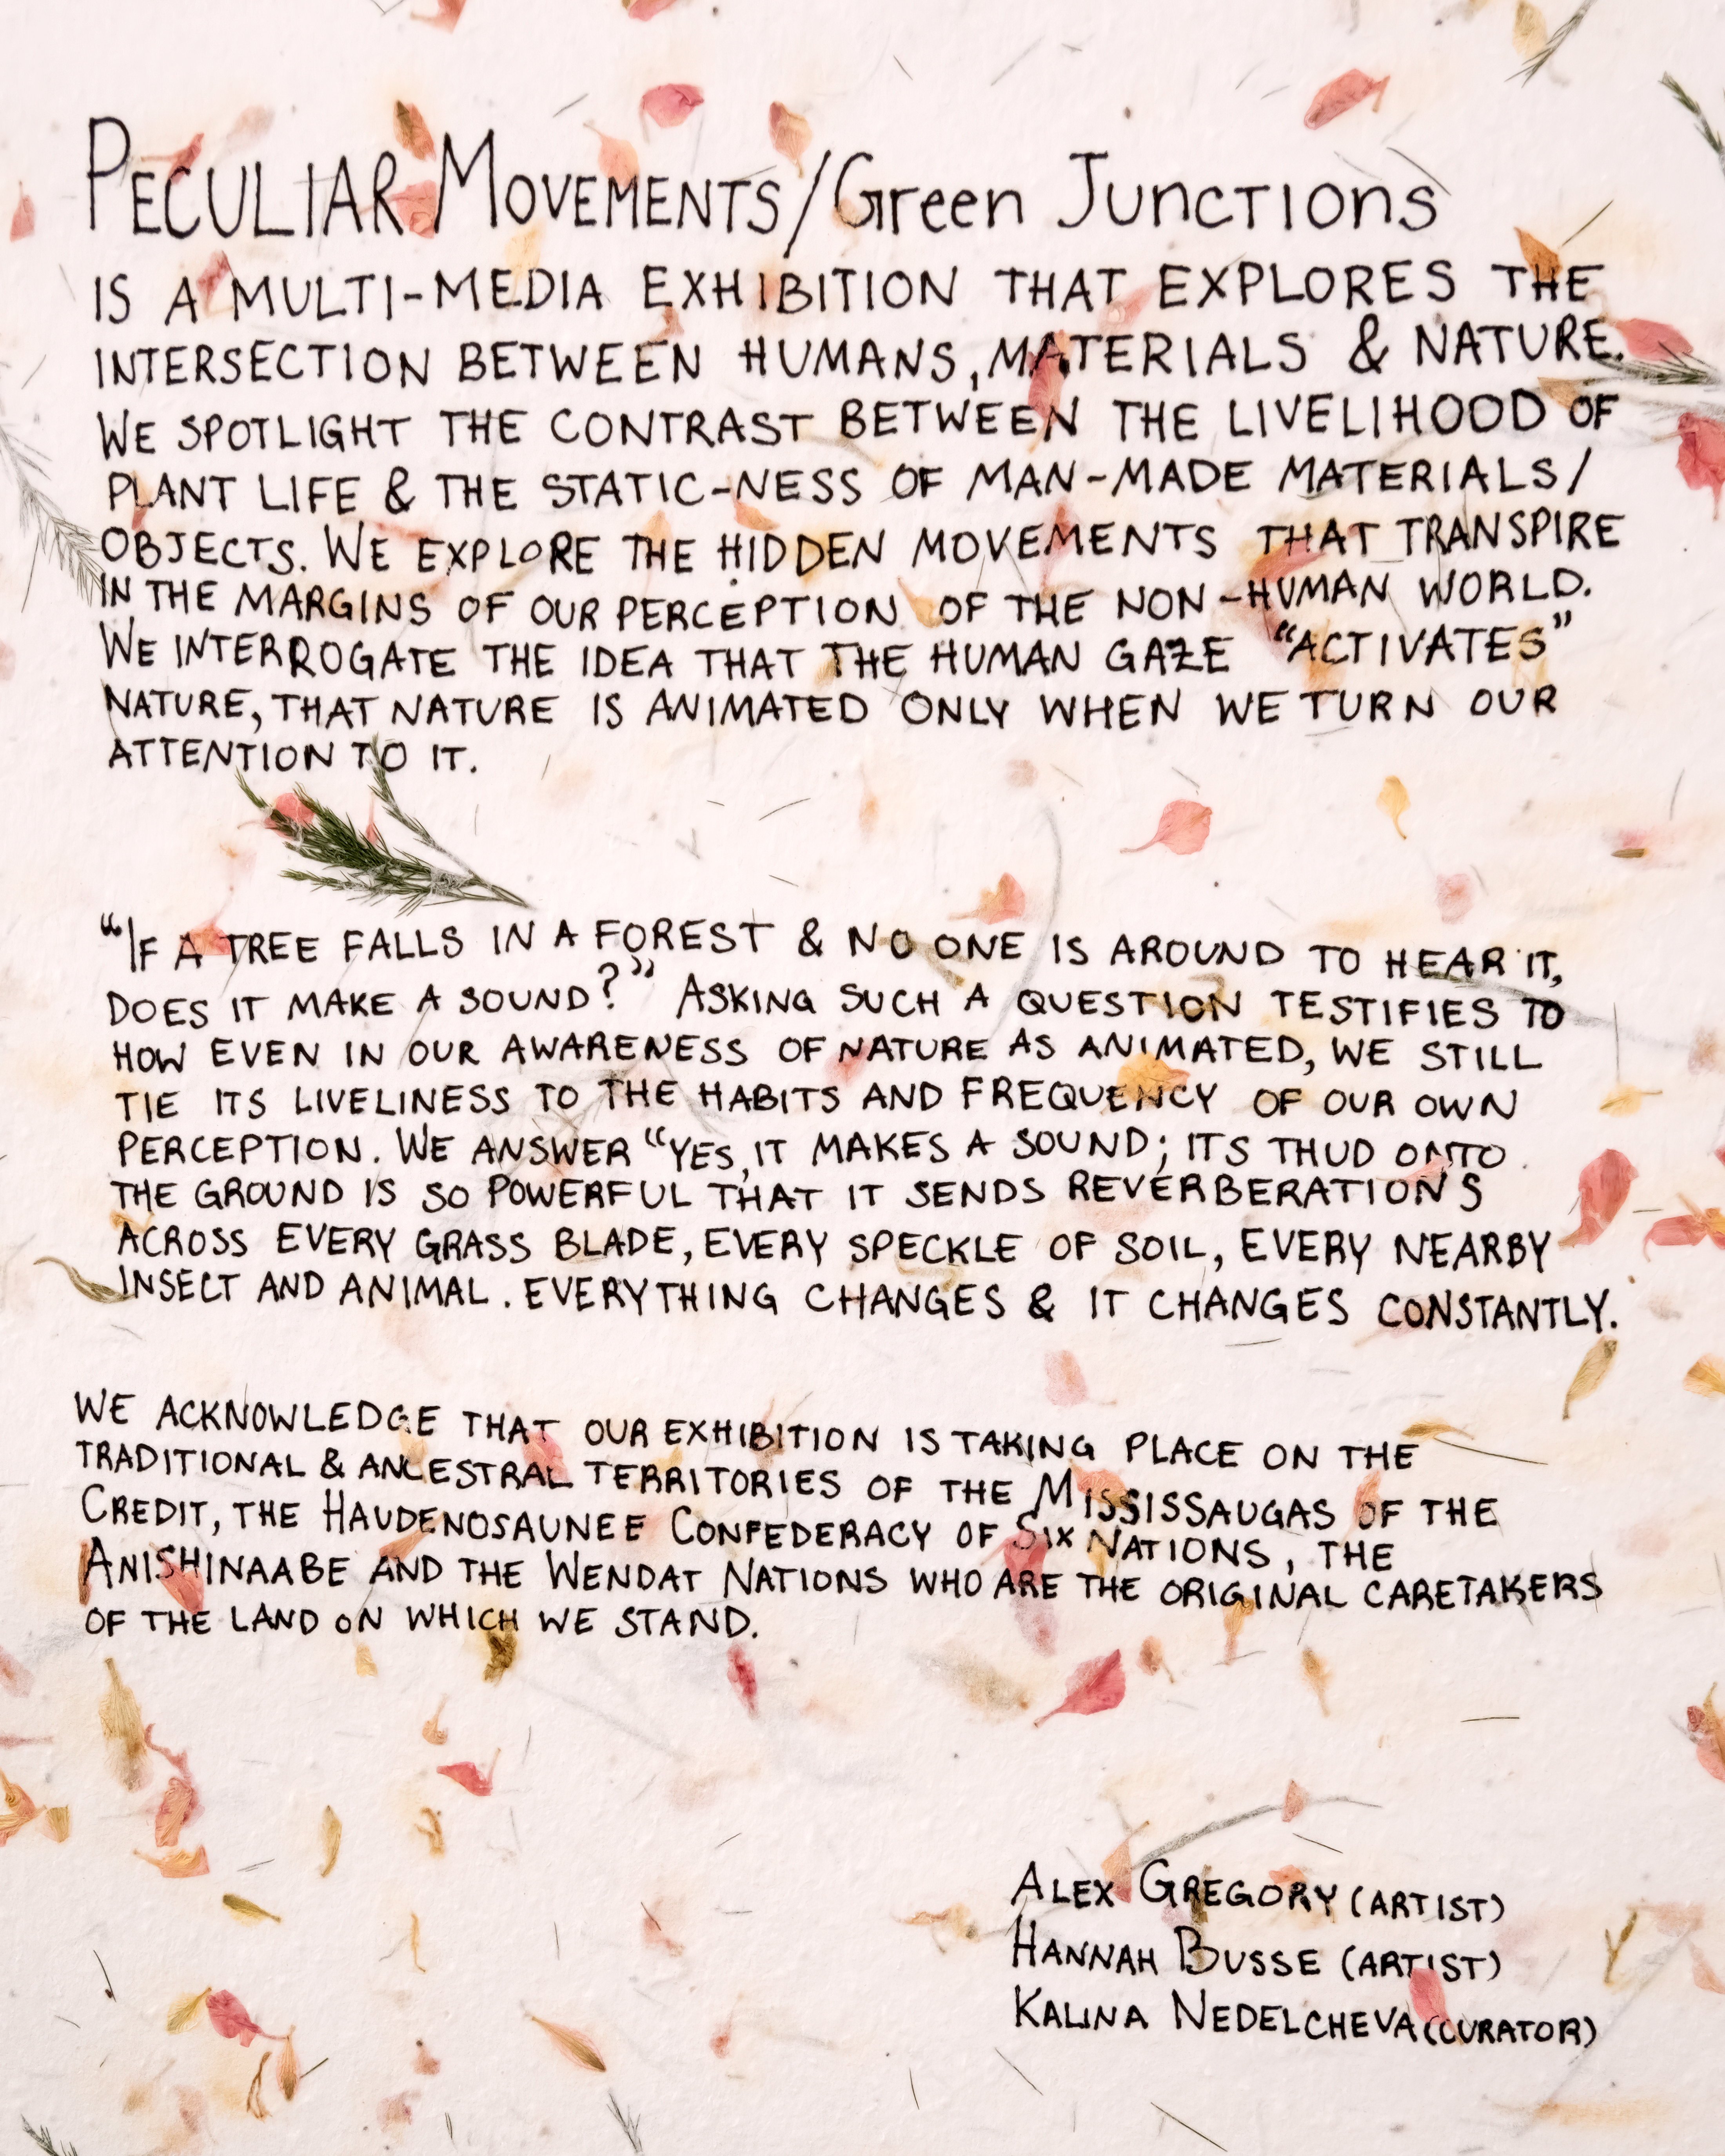 PECULIAR MOVEMENTS/Green Junctions
IS A MULTI-MEDIA EXHIBITION THAT EXPLORES THE
INTERSECTION BETWEEN HUMANS, MATERIALS & NATURE.
WE SPOTLIGHT THE CONTRAST BETWEEN THE LIVELIHOOD OF
PLANT LIFE & THE STATIC-NESS OF MAN-MADE MATERIALS/
OBJECTS. WE EXPLORE THE HIDDEN MOVEMENTS THAT TRANSPIRE
IN THE MARGINS OF OUR PERCEPTION OF THE NON-HUMAN WORLD.
WE INTERROGATE THE IDEA THAT THE HUMAN GAZE "ACTIVATES"
NATURE, THAT NATURE IS ANIMATED ONLY WHEN WE TURN OUR
ATTENTION TO IT.
"IF A TREE FALLS IN A FOREST & NO ONE IS AROUND TO HEAR IT,
DOES IT MAKE A SOUND?" ASKING SUCH A QUESTION TESTIFIES TO
HOW EVEN IN OUR AWARENESS OF NATURE AS ANIMATED, WE STILL
TIE ITS LIVELINESS TO THE HABITS AND FREQUENCY OF OUR OWN
PERCEPTION. WE ANSWER "YES, IT MAKES A SOUND; ITS THUD ONTO
THE GROUND IS SO POWERFUL THAT IT SENDS REVERBERATIONS
ACROSS EVERY GRASS BLADE, EVERY SPECKLE OF SOIL, EVERY NEARBY
INSECT AND ANIMAL. EVERYTHING CHANGES & IT CHANGES CONSTANTLY.
WE ACKNOWLEDGE THAT OUR EXHIBITION IS TAKING PLACE ON THE
TRADITIONAL & ANCESTRAL TERRITORIES OF THE MISSISSAUGAS OF THE
CREDIT, THE HAUDENOSAUNEE CONFEDERACY OF SIX NATIONS, THE
ANISHINAABE AND THE WENDAT NATIONS WHO ARE THE ORIGINAL CARETAKERS
OF THE LAND ON WHICH WE STAND.
ALEX GREGORY (ARTIST)
HANNAH BUSSE (ARTIST)
KALINA NEDELCHEVA (CURATOR)